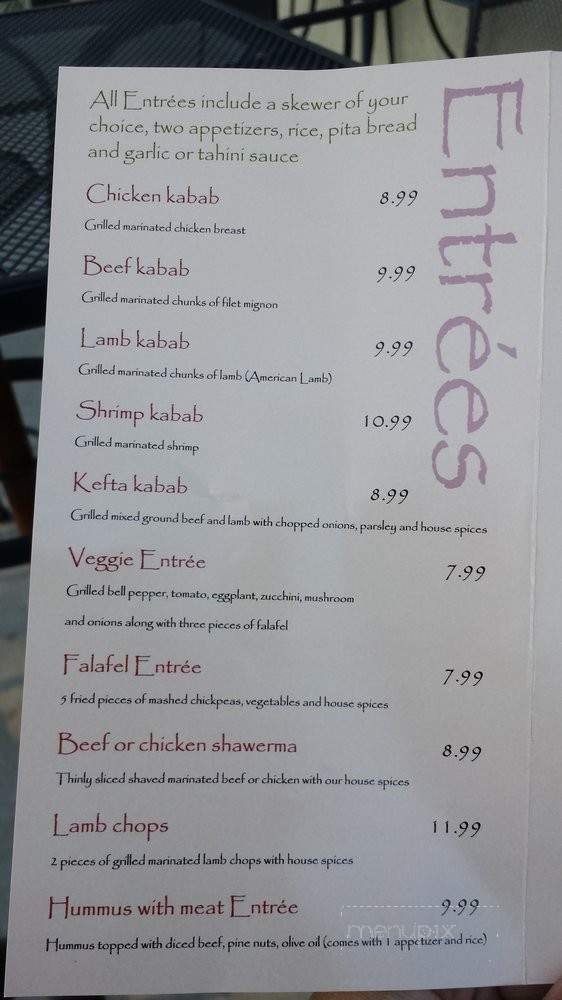 All Entrées include a skewer of your
choice, two appetizers, rice, pita bread
and garlic or tahini sauce
Entrées
Chicken kabab 8.99
Grilled marinated chicken breast
Beef kabab 9.99
Grilled marinated chunks of filet mignon
Lamb kabab 9.99
Grilled marinated chunks of lamb (American Lamb)
Shrimp kabab 10.99
Grilled marinated shrimp
Kefta kabab 8.99
Grilled mixed ground beef and lamb with chopped onions, parsley and house spices
Veggie Entrée 7.99
Grilled bell pepper, tomato, eggplant, zucchini, mushroom
and onions along with three pieces of falafel
Falafel Entrée 7.99
5 fried pieces of mashed chickpeas, vegetables and house spices
Beef or chicken shawerma 8.99
Thinly sliced shaved marinated beef or chicken with our house spices
Lamb chops 11.99
2 pieces of grilled marinated lamb chops with house spices
Hummus with meat Entrée 9.99
menupix
Hummus topped with diced beef, pine nuts, olive oil (comes with 1 appetizer and rice)